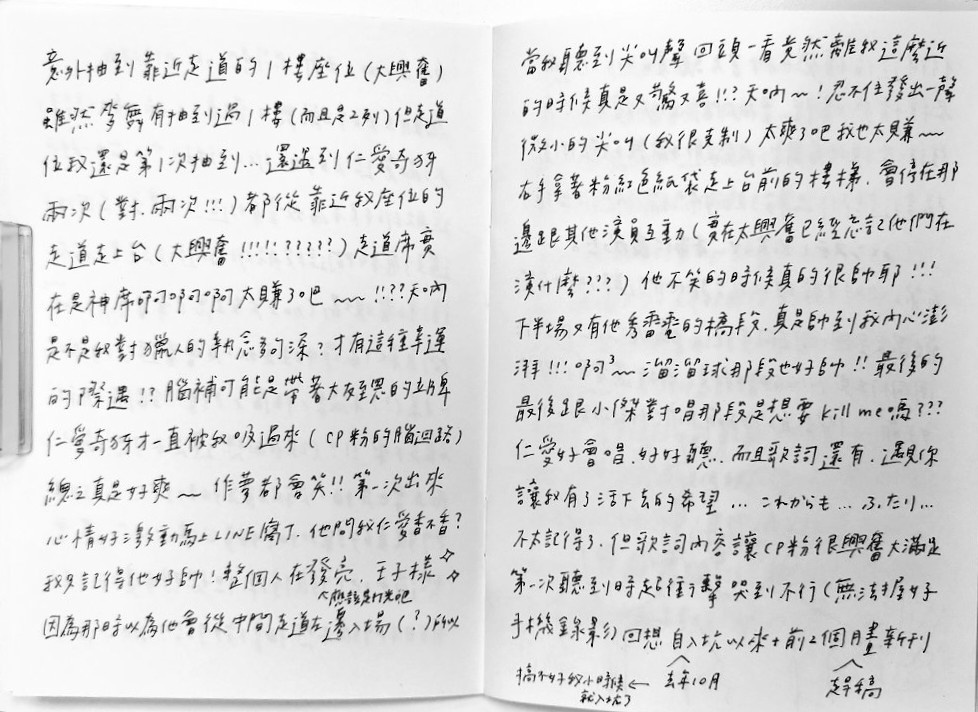 意外抽到靠近走道的1樓座位(大興奮)
雖然麥舞有抽到過1樓(而且是2列)但走道
位我還是第1次抽到...還遇到仁愛奇犽
兩次(對、兩次!!!)都從靠近我座位的
走道走上台(太興奮!!!!!?????)走道席實
在是神席啊啊啊太賺了吧~~!!??天吶
是不是我對獵人的執念夠深?才有這種幸運
的際遇!?腦補可能是帶著大友至恩的立牌
仁愛奇犽才一直被我吸過來(CP粉的腦迴路)
總之真是好爽~作夢都會笑!!第一次出來
心情好激動馬上LINE窩丁、他問我仁愛香不香?
我只記得他好帥!整個人在發亮、王子樣
^應該是打光吧
因為那時以為他會從中間走道左邊入場(?)所以
當我聽到尖叫聲 回頭一看竟然離我這麼近
的時候真是又驚又喜!!?天吶~!忍不住發出一聲
微小的尖叫(我很克制)太爽了吧我也太賺~~
右手拿著粉紅色紙袋走上台前的樓梯、會停在那
邊跟其他演員互動(實在太興奮已經忘記他們在
演什麼???)他不笑的時候真的很帥耶!!!
下半場又有他秀電電的橋段、真是帥到我內心澎
湃!!!啊³~溜溜球那段也好帥!!最後的
最後跟小傑對唱那段是想要kill me嗎???
仁愛好會唱、好好聽、而且歌詞還有、遇見你
讓我有了活下去的希望...これからも...ふたり...
不太記得了、但歌詞內容讓CP粉很興奮大滿足
第一次聽到時起往行擊 哭到不行(無法握好
手機錄影)回想自入坑以來+前2個月畫新刊
搞不好我小時候 ← 去年10月
就入坑了
趕稿